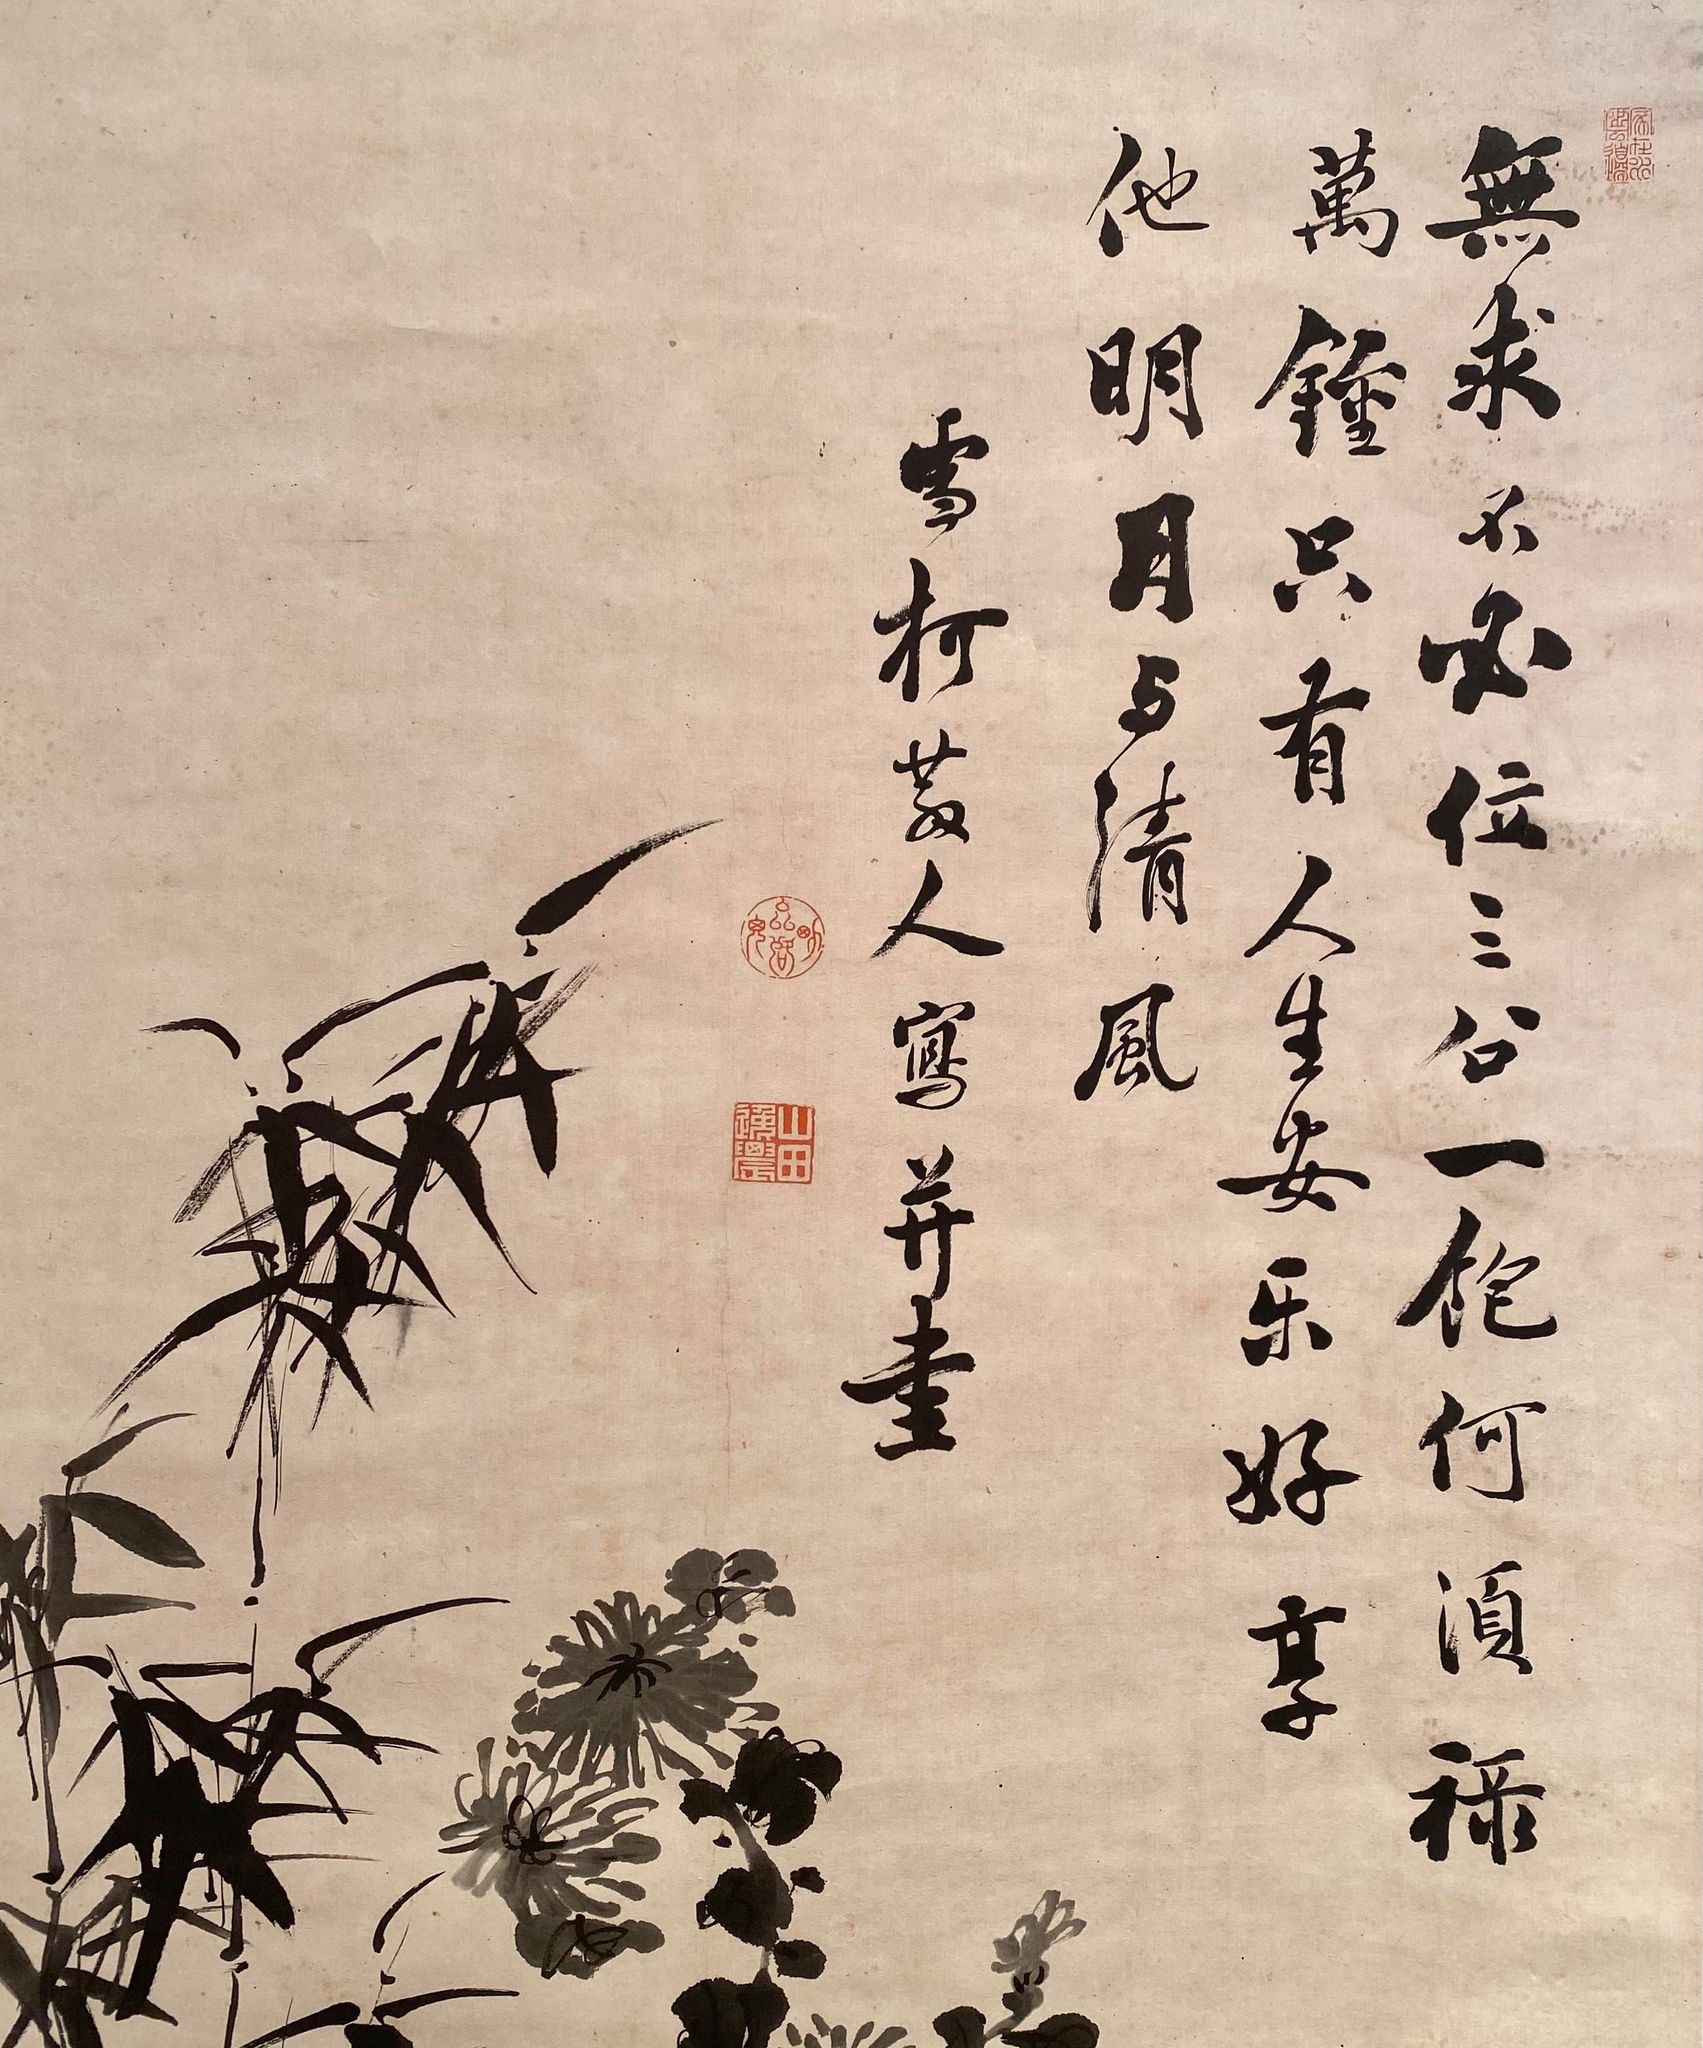 無求不必位三公一飽何湏禄
萬鍾只有人生安乐好享
他明月与清風
雪柯散人寫并書
山田